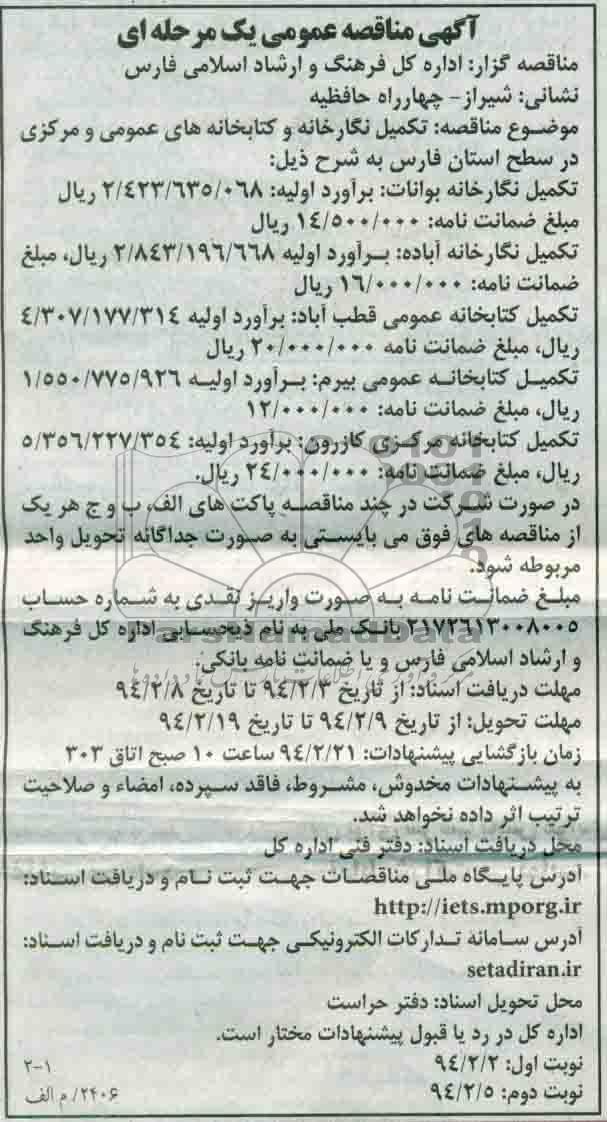 آگهی مناقصه عمومی یک مرحله ای
مناقصه گزار: اداره کل فرهنگ و ارشاد اسلامی فارس
نشانی: شیراز - چهارراه حافظیه
موضوع مناقصه: تکمیل نگارخانه و کتابخانه های عمومی و مرکزی
در سطح استان فارس به شرح ذیل:
تکمیل نگارخانه بوانات: برآورد اولیه: ۲/۴۲۳/۶۳۵/۰۶۸ ریال
مبلغ ضمانت نامه: ۱۴/۵۰۰/۰۰۰ ریال
تکمیل نگارخانه آباده: برآورد اولیه ۲/۸۴۳/۱۹۶/۶۶۸ ریال، مبلغ
ضمانت نامه: ۱۶/۰۰۰/۰۰۰ ریال
تکمیل کتابخانه عمومی قطب آباد: برآورد اولیه ۴/۳۰۷/۱۷۷/۳۱۴
ریال، مبلغ ضمانت نامه ۲۰/۰۰۰/۰۰۰ ریال
تکمیل کتابخانه عمومی بیرم: برآورد اولیه ۱/۵۵۰/۷۷۵/۹۲۶
ریال، مبلغ ضمانت نامه: ۱۲/۰۰۰/۰۰۰
تکمیل کتابخانه مرکزی کازرون: برآورد اولیه: ۵/۳۵۶/۲۲۷/۳۵۴
ریال، مبلغ ضمانت نامه: ۲۴/۰۰۰/۰۰۰ ریال.
در صورت شرکت در چند مناقصه پاکت های الف، ب و ج هر یک
از مناقصه های فوق می بایستی به صورت جداگانه تحویل واحد
مربوطه شود.
مبلغ ضمانت نامه به صورت واریز نقدی به شماره حساب
۲۱۷۲۶۱۳۰۰۸۰۰۵ بانک ملی به نام ذیحسابی اداره کل فرهنگ
و ارشاد اسلامی فارس و یا ضمانت نامه بانکی.
مهلت دریافت اسناد: از تاریخ ۹۴/۲/۳ تا تاریخ ۹۴/۲/۸
مهلت تحویل: از تاریخ ۹۴/۲/۹ تا تاریخ ۹۴/۲/۱۹
زمان بازگشایی پیشنهادات: ۹۴/۲/۲۱ ساعت ۱۰ صبح اتاق ۳۰۳
به پیشنهادات مخدوش، مشروط، فاقد سپرده، امضاء و صلاحیت
ترتیب اثر داده نخواهد شد.
محل دریافت اسناد: دفتر فنی اداره کل
آدرس پایگاه ملی مناقصات جهت ثبت نام و دریافت اسناد:
http://iets.mporg.ir
آدرس سامانه تدارکات الکترونیکی جهت ثبت نام و دریافت اسناد:
setadiran.ir
محل تحویل اسناد: دفتر حراست
اداره کل در رد یا قبول پیشنهادات مختار است.
نوبت اول: ۹۴/۲/۲ ۲-۱
نوبت دوم: ۹۴/۲/۵ ۲۴۰۶/م الف